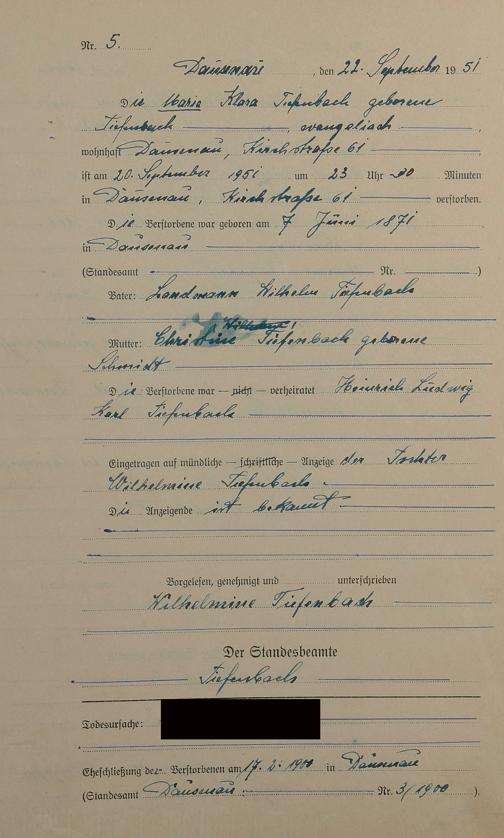 Nr. 5.
Dausenau, den 22. September 1951
Die Maria Klara Tiefenbach geborene
Tiefenbach, evangelisch
wohnhaft Dausenau, Kirchstraße 61
ist am 20. September 1951 um 23 Uhr 30 Minuten
in Dausenau, Kirchstraße 61 verstorben.
Die Verstorbene war geboren am 7 Juni 1871
in Dausenau
(Standesamt Nr.)
Vater: Landmann Wilhelm Tiefenbach
Mutter: Christine Tiefenbach geborene
Schmidt
Die Verstorbene war — nicht — verheiratet Heinrich Ludwig
Karl Tiefenbach
Eingetragen auf mündliche — schriftliche — Anzeige der Tochter
Wilhelmine Tiefenbach.
Die Anzeigende ist bekannt.
Vorgelesen, genehmigt und unterschrieben
Wilhelmine Tiefenbach
Der Standesbeamte
Tiefenbach
Todesursache:
Eheschließung der Verstorbenen am 17. 2. 1900 in Dausenau
(Standesamt Dausenau Nr. 3/1900).